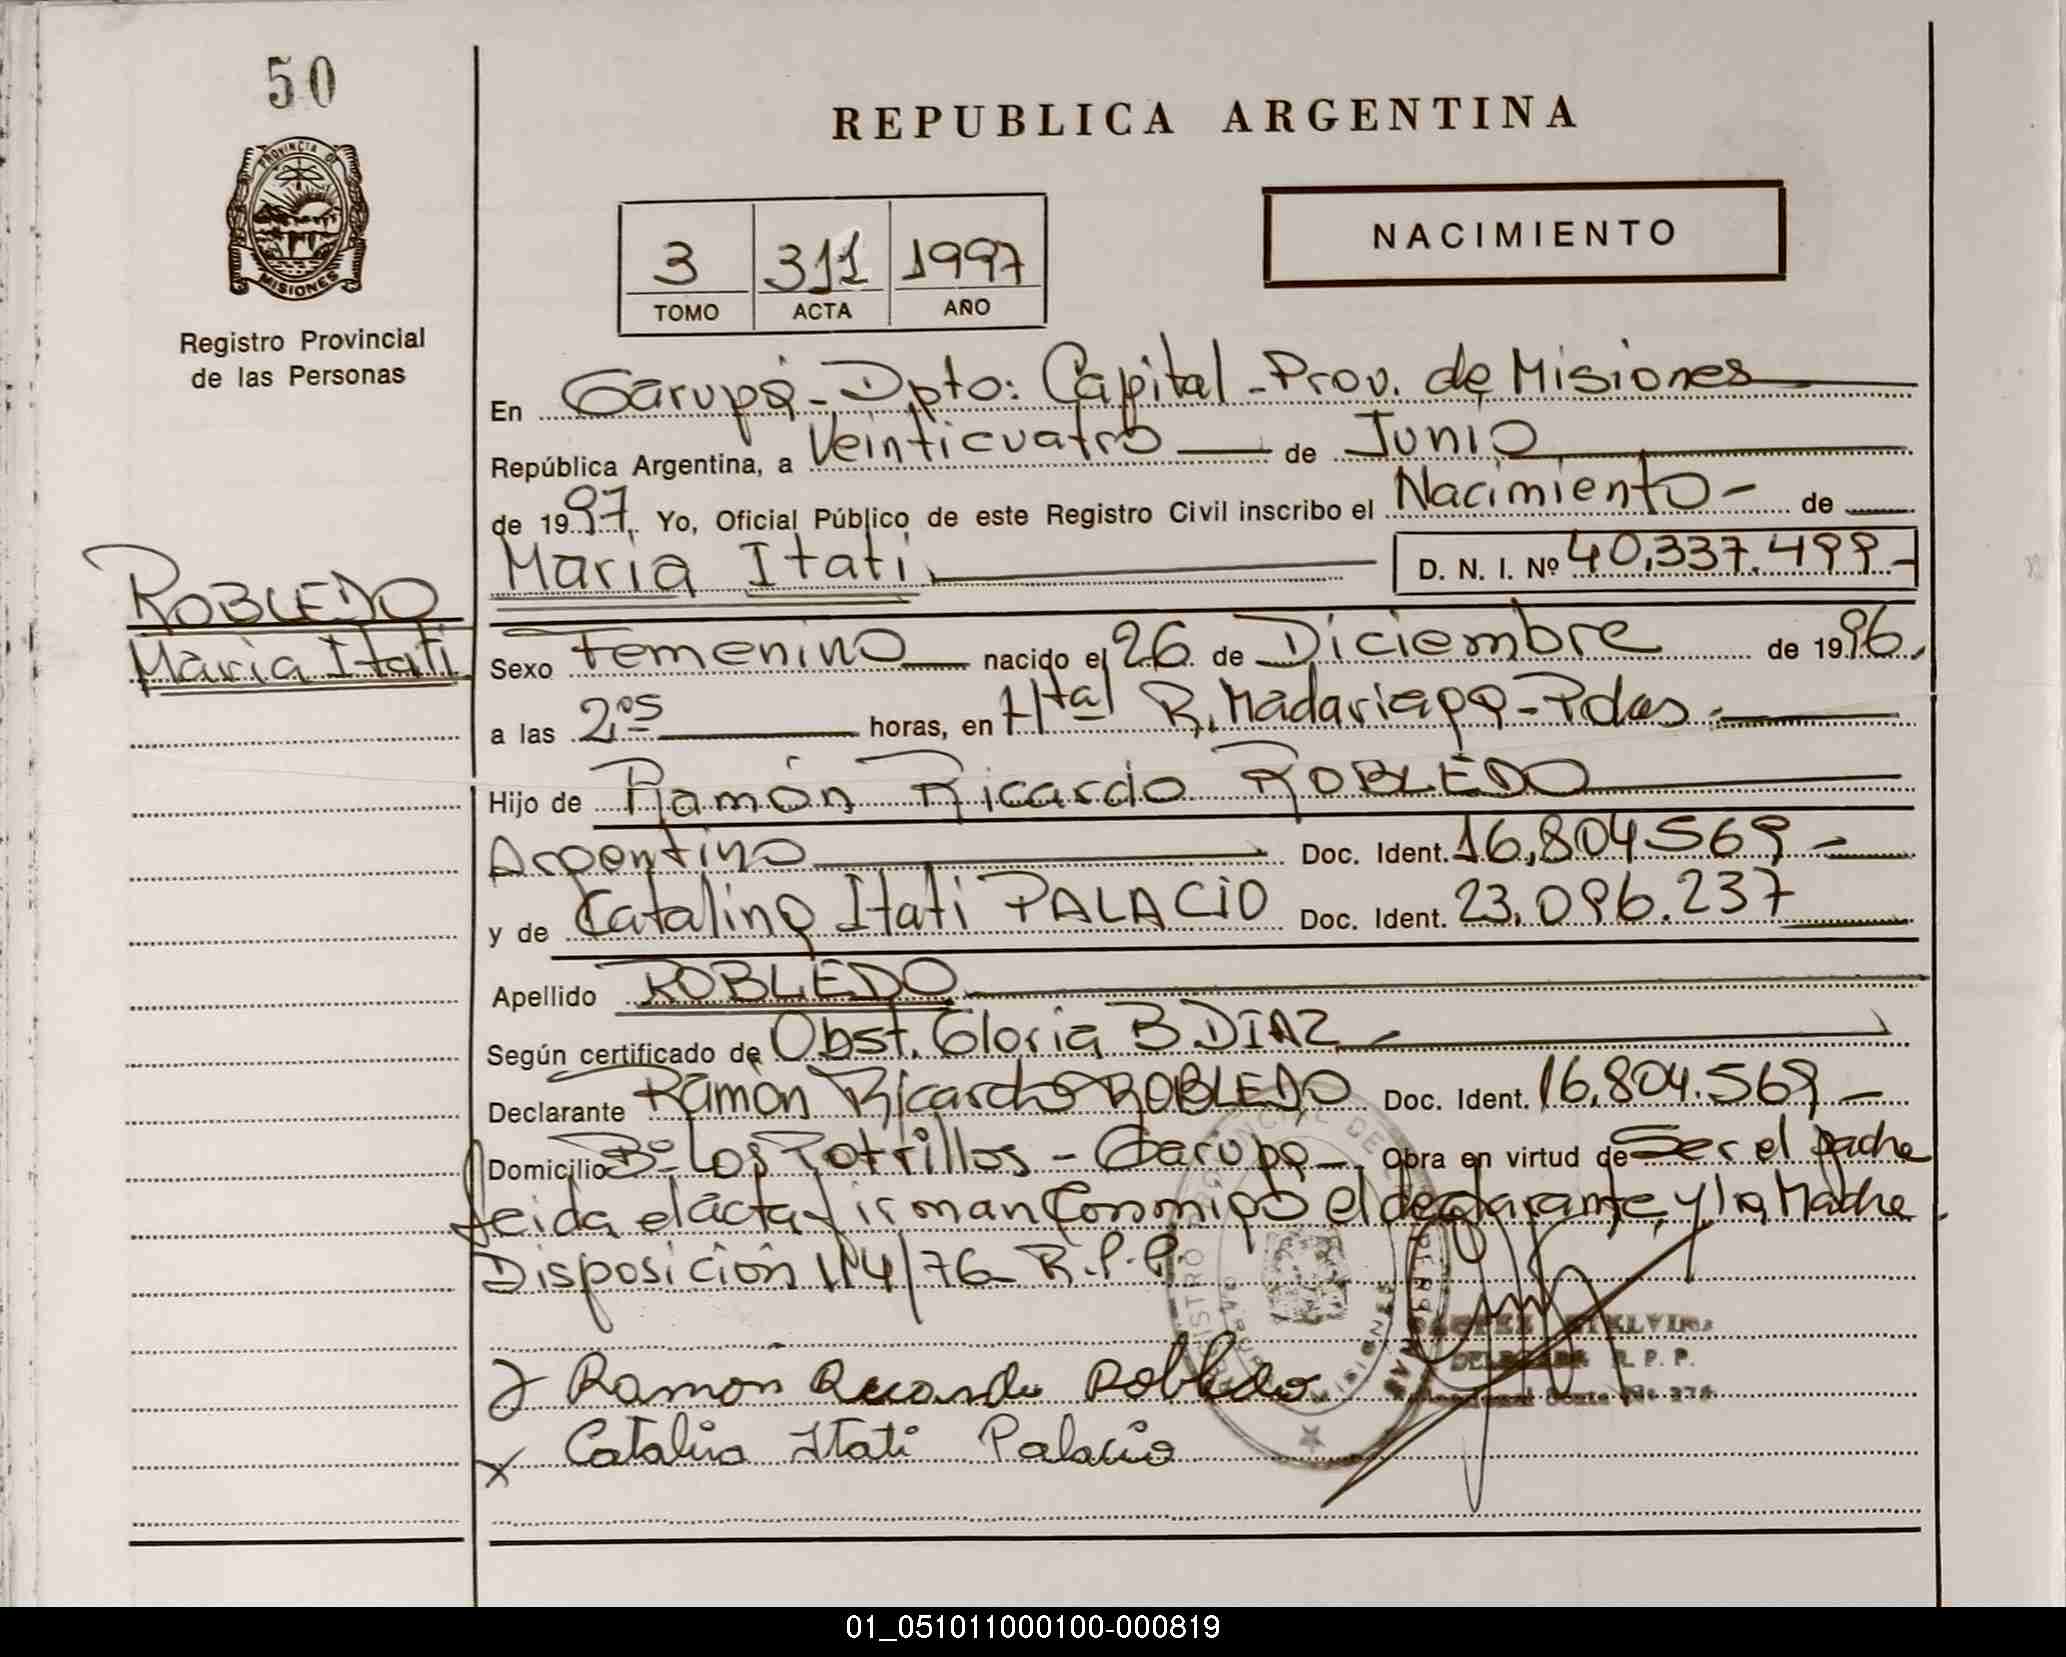 50
PROVINCIA DE
MISIONES
Registro Provincial
de las Personas
REPUBLICA ARGENTINA
NACIMIENTO
3 311 1997
TOMO ACTA AÑO
En Garupá - Dpto: Capital - Prov. de Misiones
República Argentina, a Veinticuatro de Junio
de 1997. Yo, Oficial Público de este Registro Civil inscribo el Nacimiento - de
ROBLEDO
Maria Itati
Maria Itati D. N. I. Nº 40.337.499-
Sexo Femenino nacido el 26 de Diciembre de 1996,
a las 2,05 horas, en Htal R. Madariaga - Pdas.
Hijo de Ramón Ricardo ROBLEDO
Argentino Doc. Ident. 16.804.569 -
y de Catalina Itati PALACIO Doc. Ident. 23.096.237
Apellido ROBLEDO
Según certificado de Obst. Gloria B. DIAZ -
Declarante Ramón Ricardo ROBLEDO Doc. Ident. 16.804.569 -
Domicilio Bº Los Potrillos - Garupá - Obra en virtud de Ser el padre
leida el acta firman conmigo el declarante, y la Madre.
Disposición 114/76 R.P.P.
Ramón Ricardo Robledo
x Catalina Itati Palacio
R. P. P.
MISIONES
01_051011000100-000819